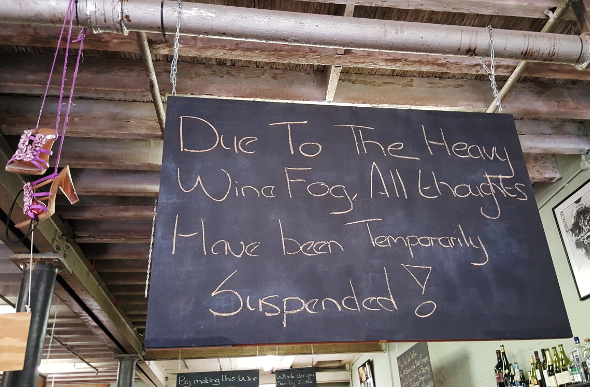 Due To The Heavy
Wine Fog, All thoughts
Have been Temporarily
Suspended!
By making this Wine